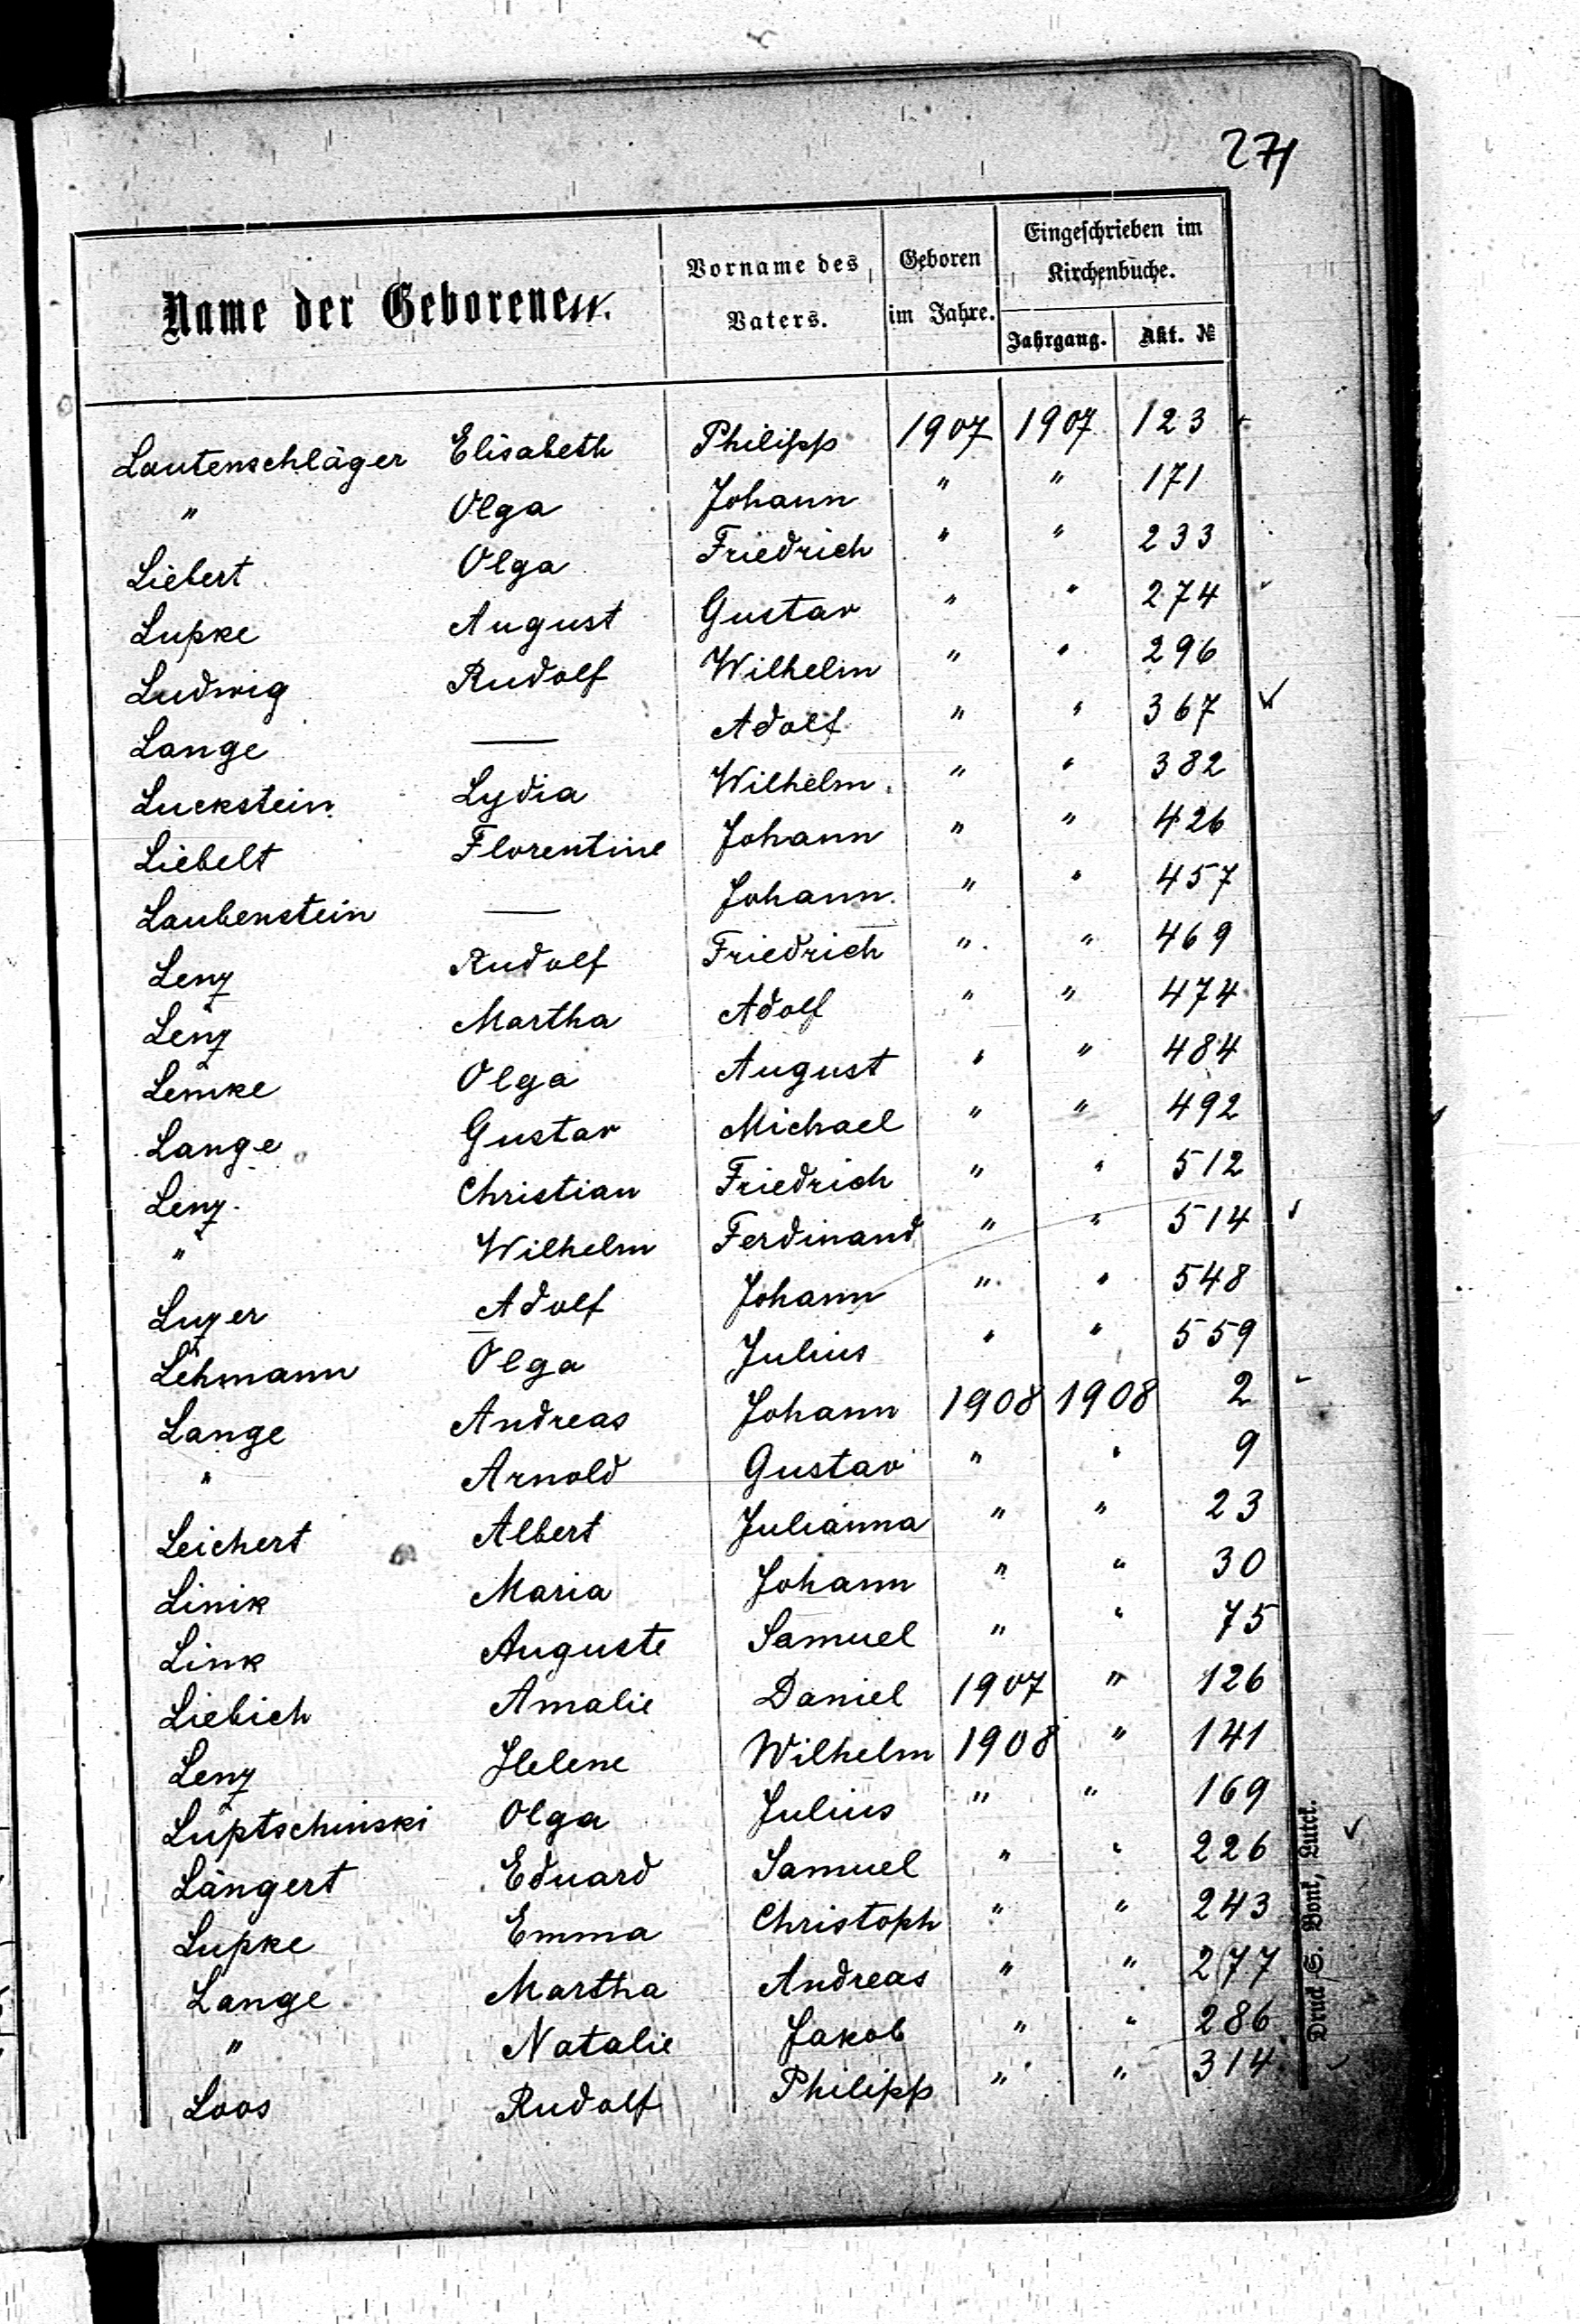 271
Name der Geborenen.
Vorname des Vaters.
Geboren im Jahre.
Eingeschrieben im Kirchenbuche.
Jahrgang. Akt. №
Lautenschläger Elisabeth Philipp 1907 1907 123
" Olga Johann " " 171
Liebert Olga Friedrich " " 233
Lupke August Gustav " " 274
Ludwig Rudolf Wilhelm " " 296
Lange — Adolf " " 367 ✓
Luckstein Lydia Wilhelm " " 382
Liebelt Florentine Johann " " 426
Laubenstein — Johann " " 457
Lenz Rudolf Friedrich " " 469
Lenz Martha Adolf " " 474
Lemke Olga August " " 484
Lange Gustav Michael " " 492
Lenz Christian Friedrich " " 512
" Wilhelm Ferdinand " " 514 ✓
Luzer Adolf Johann " " 548
Lehmann Olga Julius " " 559
Lange Andreas Johann 1908 1908 2
" Arnold Gustav " " 9
Leichert Albert Julianna " " 23
Linik Maria Johann " " 30
Link Auguste Samuel " " 75
Liebich Amalie Daniel 1907 " 126
Lenz Helene Wilhelm 1908 " 141
Luptschinski Olga Julius " " 169
Längert Eduard Samuel " " 226 ✓
Lupke Emma Christoph " " 243
Lange Martha Andreas " " 277
" Natalie Jakob " " 286
Loos Rudolf Philipp " " 314
Druck S. Bonk, Luzk.